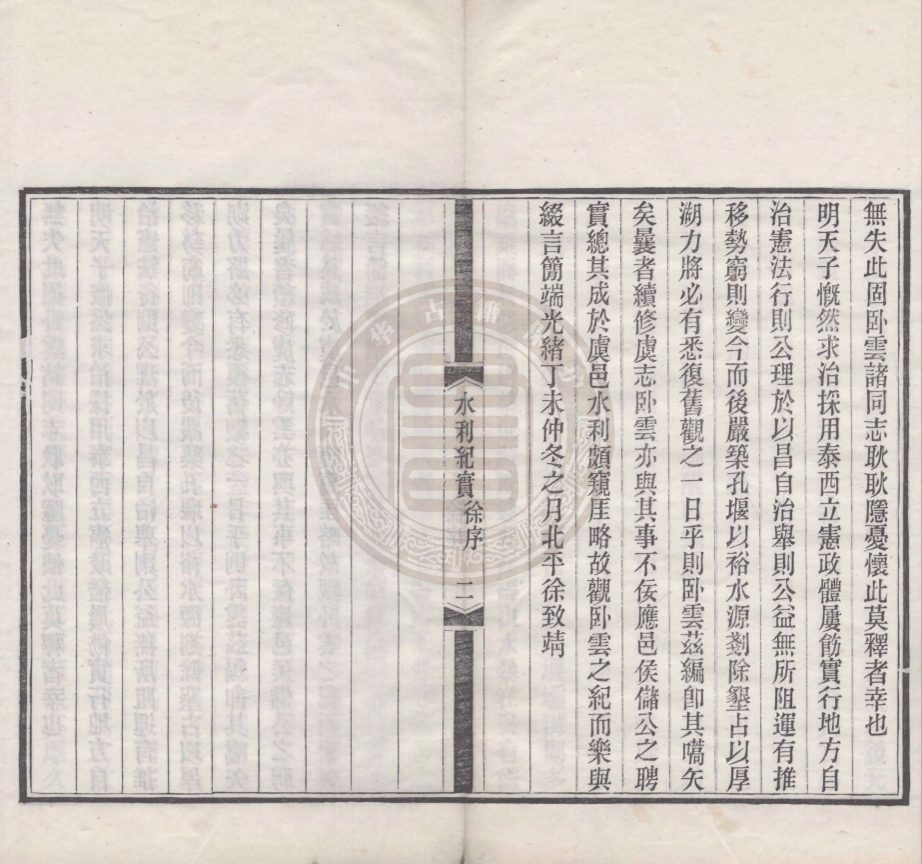 無失此固卧雲諸同志耿耿隱憂懷此莫釋者幸也
明天子慨然求治採用泰西立憲政體屢飭實行地方自
治憲法行則公理於以昌自治舉則公益無所阻運有推
移勢窮則變今而後嚴築孔堰以裕水源剗除墾占以厚
湖力將必有悉復舊觀之一日乎則卧雲茲編卽其嚆矢
矣曩者續修虞志卧雲亦與其事不佞應邑侯儲公之聘
實總其成於虞邑水利頗窺厓略故觀卧雲之紀而樂與
綴言簡端光緒丁未仲冬之月北平徐致靖
水利紀實 徐序 二